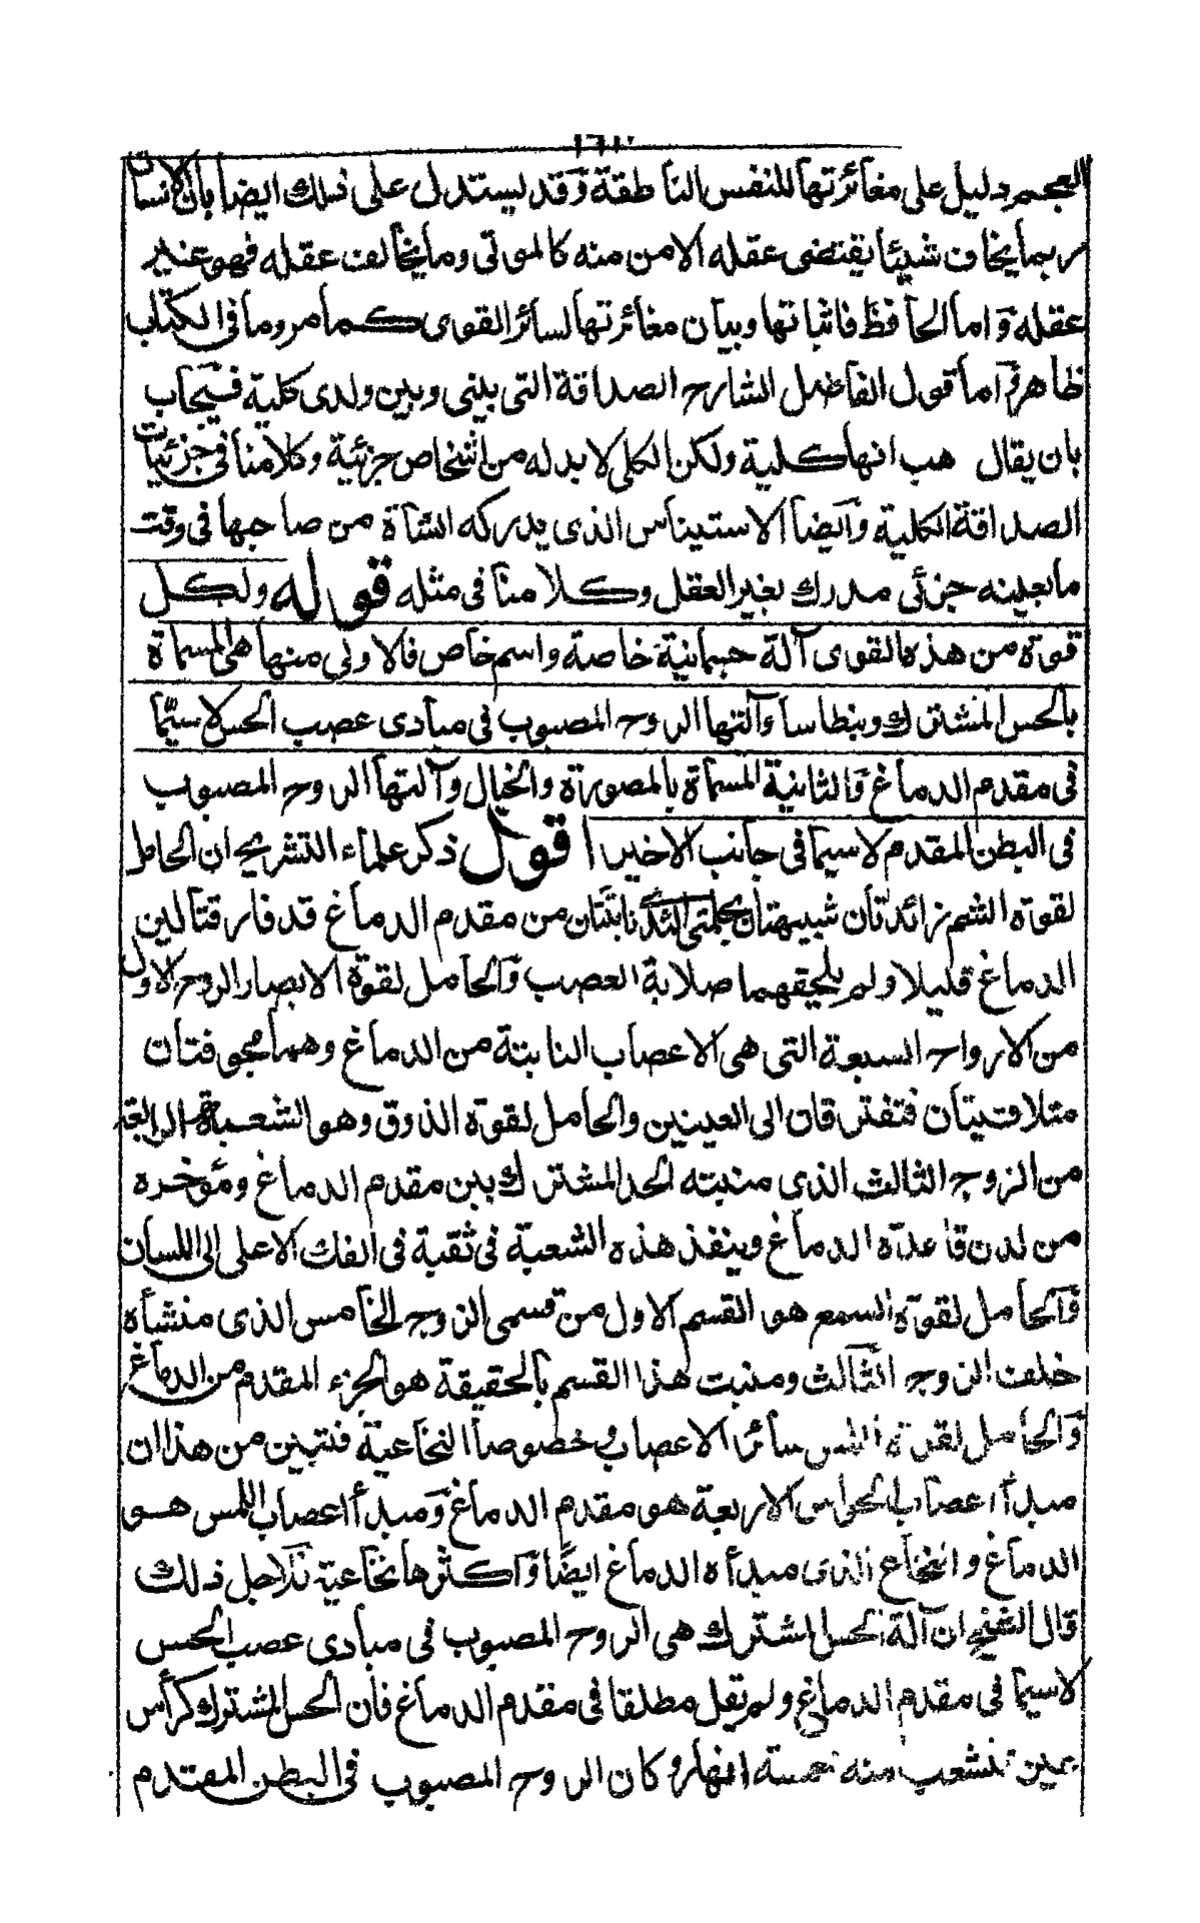 العجم دليل على مغائرتها للنفس الناطقة وقد يستدل على ذلك ايضا بان الانسان
ربما يخاف شيئا يقتضى عقله الامن منه كالموتى وما يخالف عقله فهو غير
عقله واما الحافظ فاثباتها وبيان مغائرتها لسائر القوى كما مر وما فى الكتاب
ظاهر واما قول الفاضل الشارح الصداقة التى بينى وبين ولدى كلية فيجاب
بان يقال هب انها كلية ولكن الكلى لا بد له من اشخاص جزئية وكلامنا فى جزئيات
الصداقة الكلية وايضا الاستيناس الذى يدركه الشاة من صاحبها فى وقت
ما بعينه جزئى مدرك بغير العقل وكلامنا فى مثله قوله ولكل
قوة من هذه القوى آلة جسمانية خاصة واسم خاص فالاولى منها هى المسماة
بالحس المشترك وبنطاسا وآلتها الروح المصبوب فى مبادى عصب الحس لا سيما
فى مقدم الدماغ والثانية المسماة بالمصورة والخيال وآلتها الروح المصبوب
فى البطن المقدم لا سيما فى جانب الاخير اقول ذكر علماء التشريح ان الحامل
لقوة الشم زائدتان شبيهتان بحلمتى الثدى نابتتان من مقدم الدماغ قد فارقتا لين
الدماغ قليلا ولم يلحقهما صلابة العصب والحامل لقوة الابصار الزوج الاول
من الازواج السبعة التى هى الاعصاب النابتة من الدماغ وهما مجوفتان
متلاقيتان فتفترقان الى العينين والحامل لقوة الذوق وهو الشعبة الرابعة
من الزوج الثالث الذى منبته الحد المشترك بين مقدم الدماغ ومؤخره
من لدن قاعدة الدماغ وينفذ هذه الشعبة فى ثقبة فى الفك الاعلى الى اللسان
والحامل لقوة السمع هو القسم الاول من قسمى الزوج الخامس الذى منشأه
خلف الزوج الثالث ومنبت هذا القسم بالحقيقة هو الجزء المقدم من الدماغ
والحامل لقوة اللمس سائر الاعصاب وخصوصا النخاعية فتبين من هذا ان
مبدأ اعصاب الحواس الاربعة هو مقدم الدماغ ومبدأ اعصاب اللمس هو
الدماغ والنخاع الذى مبدأه الدماغ ايضا واكثرها نخاعية فلاجل ذلك
قال الشيخ ان آلة الحس المشترك هى الروح المصبوب فى مبادى عصب الحس
لا سيما فى مقدم الدماغ ولم تقل مطلقا فى مقدم الدماغ فان الحس المشترك كرأس
عين تنشعب منه خمسة انهار وكان الروح المصبوب فى البطن المقدم